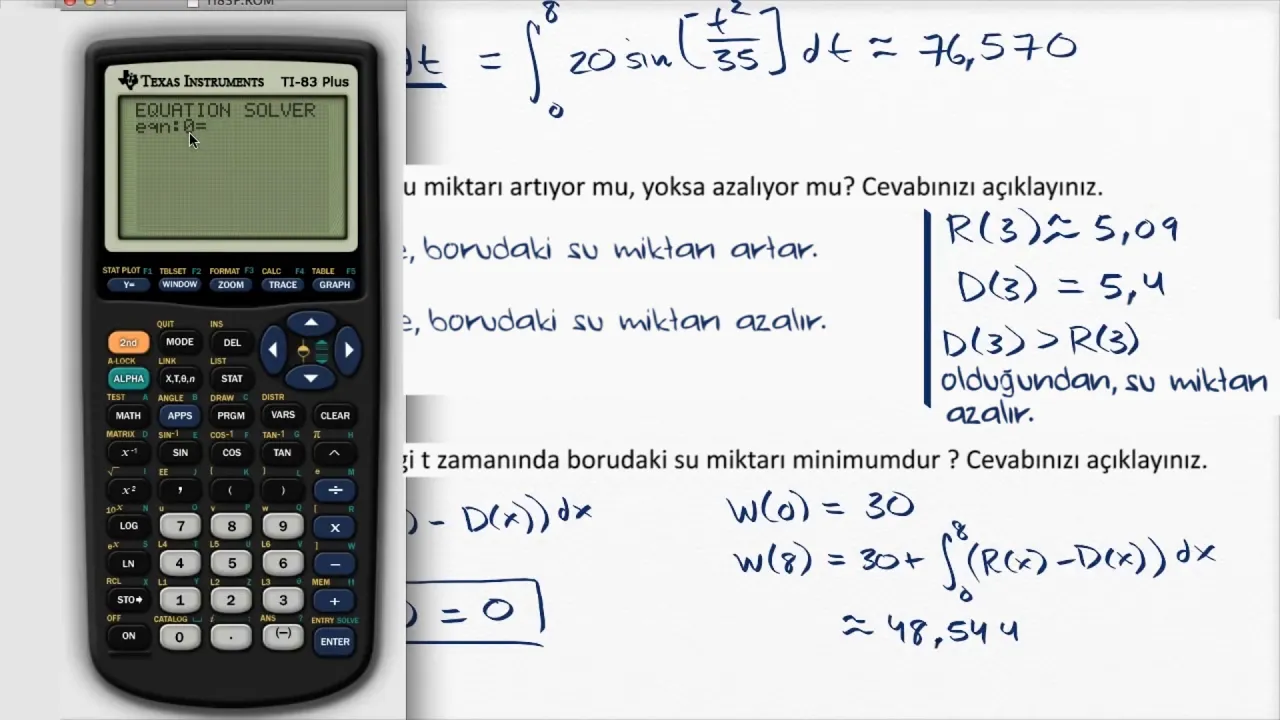 TI83P.ROM
TEXAS INSTRUMENTS TI-83 Plus
EQUATION SOLVER
eqn:0=
STAT PLOT F1 TBLSET F2 FORMAT F3 CALC F4 TABLE F5
Y= WINDOW ZOOM TRACE GRAPH
QUIT INS
2nd MODE DEL
A-LOCK LINK LIST
ALPHA X,T,θ,n STAT
TEST A ANGLE B DRAW C DISTR
MATH APPS PRGM VARS CLEAR
MATRIX D SIN⁻¹ E COS⁻¹ F TAN⁻¹ G π H
x⁻¹ SIN COS TAN ^
√ I EE J { K } L e M
x² , ( ) ÷
10ˣ N u O v P w Q [ R
LOG 7 8 9 x
eˣ S L4 T L5 U L6 V ] W
LN 4 5 6 −
RCL X L1 Y L2 Z L3 θ MEM "
STO➧ 1 2 3 +
OFF CATALOG ␣ i : ANS ? ENTRY SOLVE
ON 0 . (−) ENTER
dt = ∫₀⁸ 20 sin[t²/35] dt ≈ 76,570
u miktarı artıyor mu, yoksa azalıyor mu? Cevabınızı açıklayınız.
e, borudaki su miktarı artar.
e, borudaki su miktarı azalır.
R(3) ≈ 5,09
D(3) = 5,4
D(3) > R(3)
olduğundan, su miktarı
azalır.
gi t zamanında borudaki su miktarı minimumdur ? Cevabınızı açıklayınız.
) - D(x)) dx
) = 0
W(0) = 30
W(8) = 30 + ∫₀⁸ (R(x) - D(x)) dx
≈ 48,544